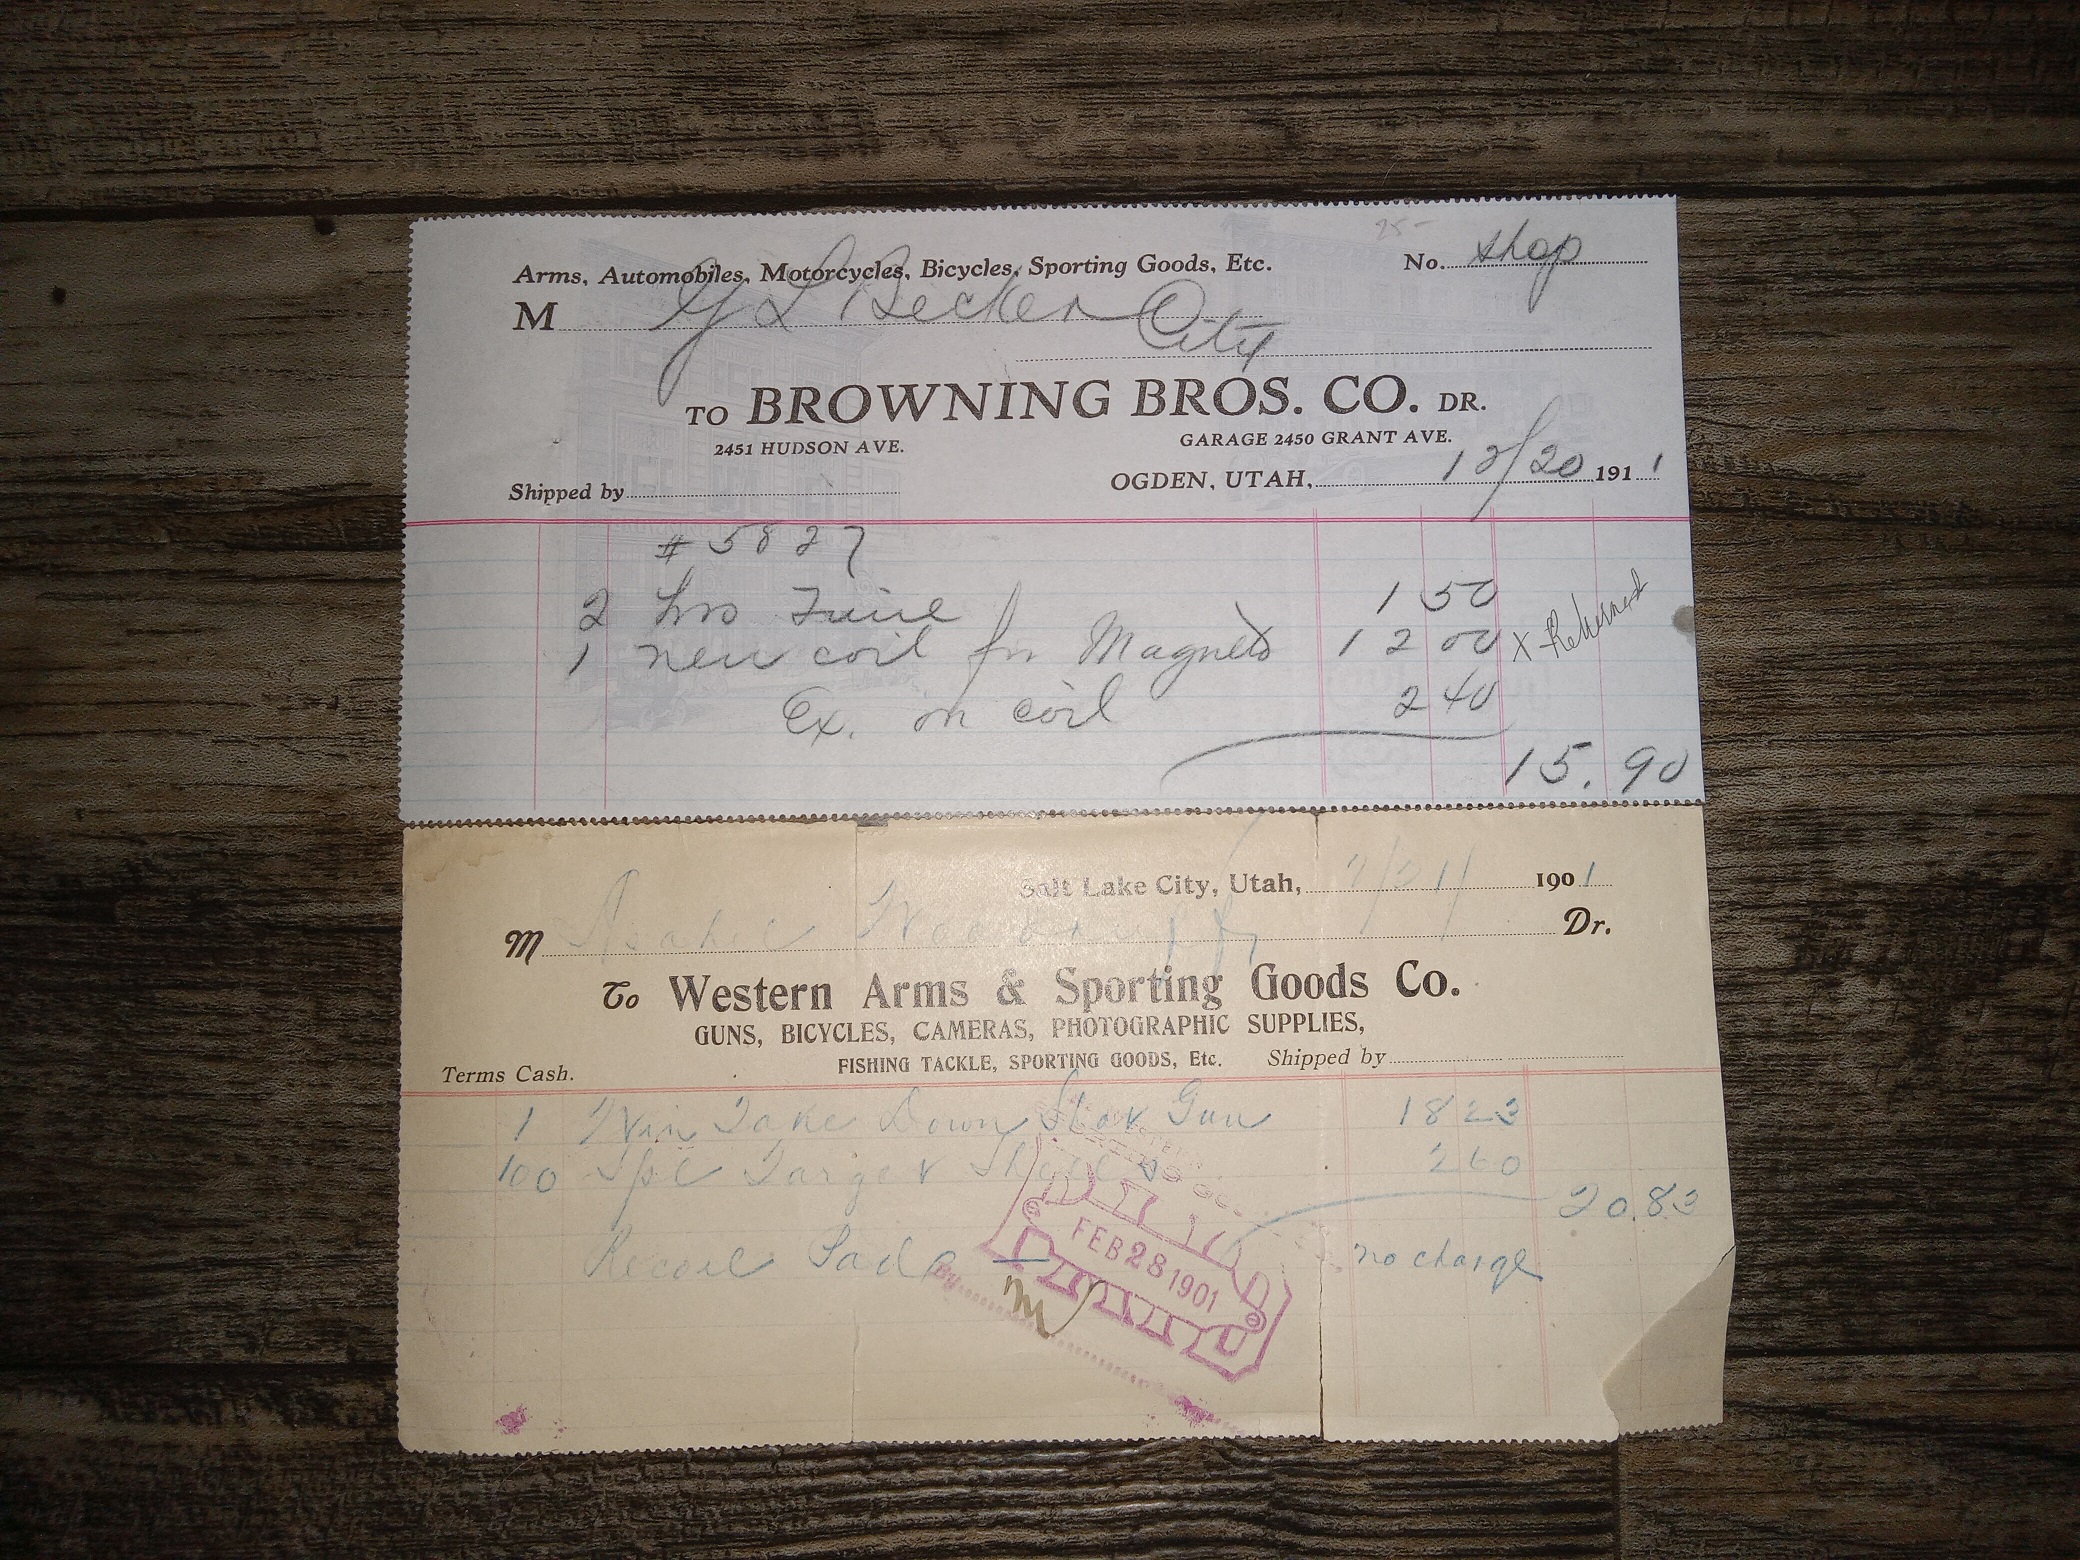 25-
Arms, Automobiles, Motorcycles, Bicycles, Sporting Goods, Etc. No. shop
M G L Becker City
TO BROWNING BROS. CO. DR.
2451 HUDSON AVE. GARAGE 2450 GRANT AVE.
OGDEN, UTAH, 12/20 1911
Shipped by
# 5827
2 hrs Time 1 50
1 new coil for Magneto 12 00 x Returned
Ex. on coil 2 40
15.90
Salt Lake City, Utah, 1901
M Woodruff Dr.
To Western Arms & Sporting Goods Co.
GUNS, BICYCLES, CAMERAS, PHOTOGRAPHIC SUPPLIES,
FISHING TACKLE, SPORTING GOODS, Etc. Shipped by
Terms Cash.
1 Win Take Down Gun 18 23
100 Spl Target Shells 2 60
20.83
Recoil Pad no charge
FEB 28 1901
By